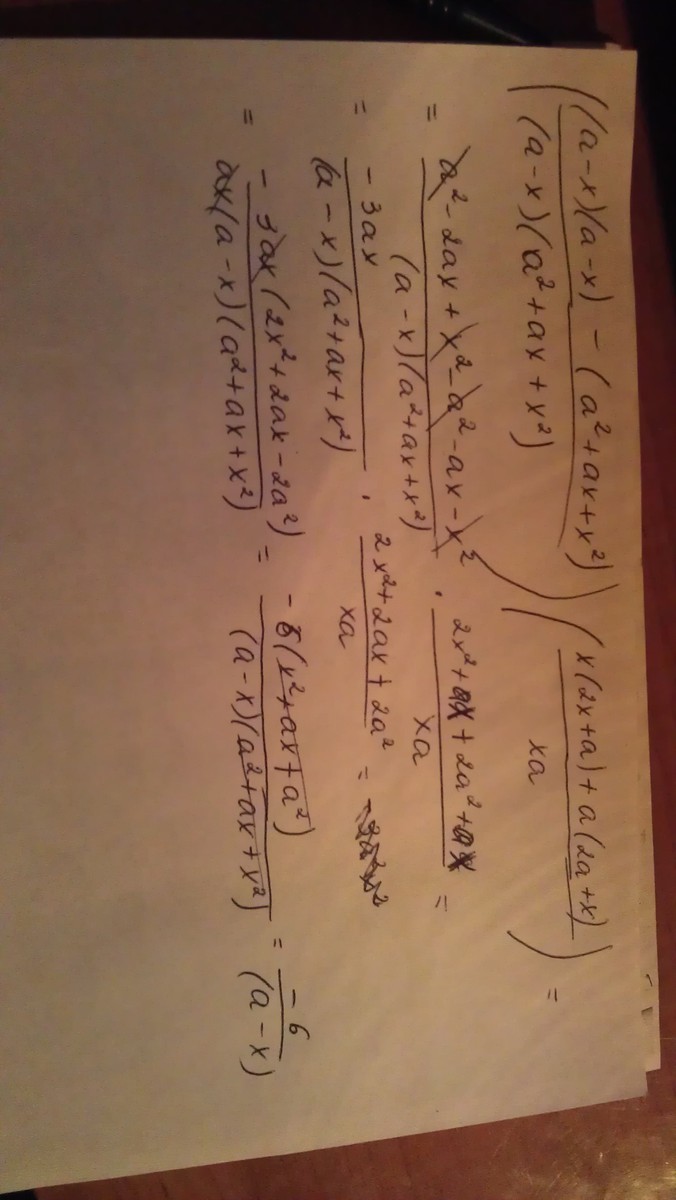 (((a-x)(a-x) - (a²+ax+x²)) / ((a-x)(a²+ax+x²))) ((x(2x+a) + a(2a+x)) / xa) =
= (a² - 2ax + x² - a² - ax - x²) / ((a-x)(a²+ax+x²)) · (2x² + ax + 2a² + ax) / xa =
= - 3ax / ((a-x)(a²+ax+x²)) · (2x² + 2ax + 2a²) / xa =
= - 3ax(2x² + 2ax - 2a²) / (ax(a-x)(a²+ax+x²)) = - 6(x²+ax+a²) / ((a-x)(a²+ax+x²)) = - 6 / (a-x)